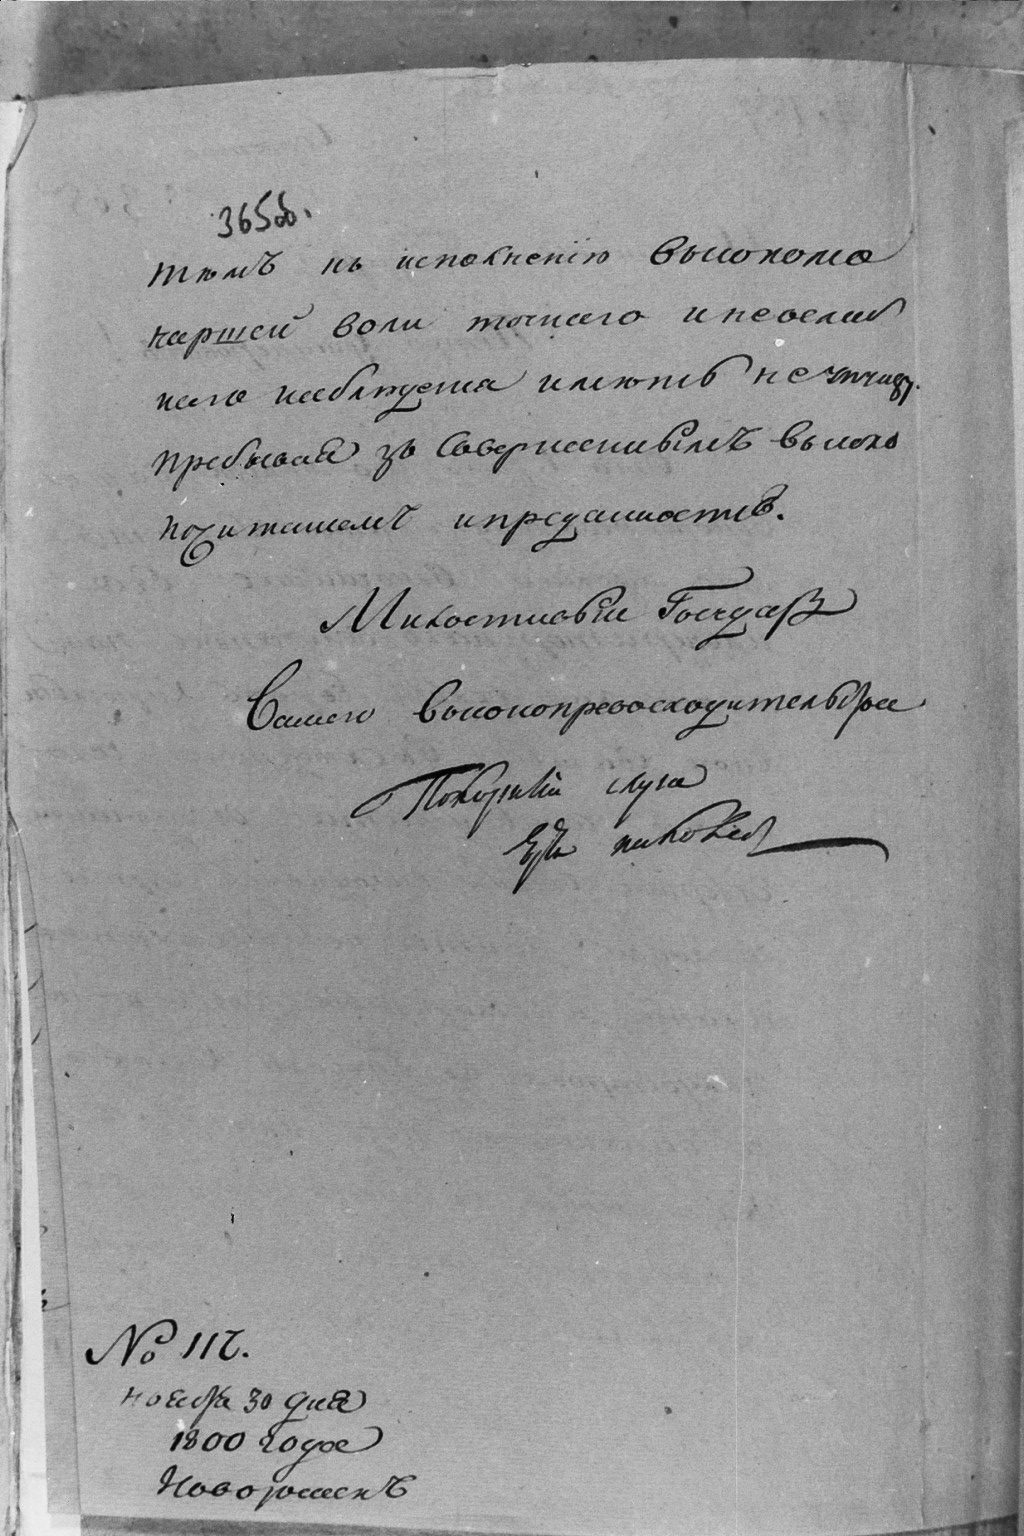 365об.
тѣмъ къ исполненію высокомо
наршей воли точнаго и неослаб
наго наблюдения имѣть не
пребывая зъ совершеннымъ высоко
почитаниемъ и преданностию.
Милостивый Государь
Вашего высокопревосходительства
Покорный слуга
№ 117.
ноября 30 дня
1800 года